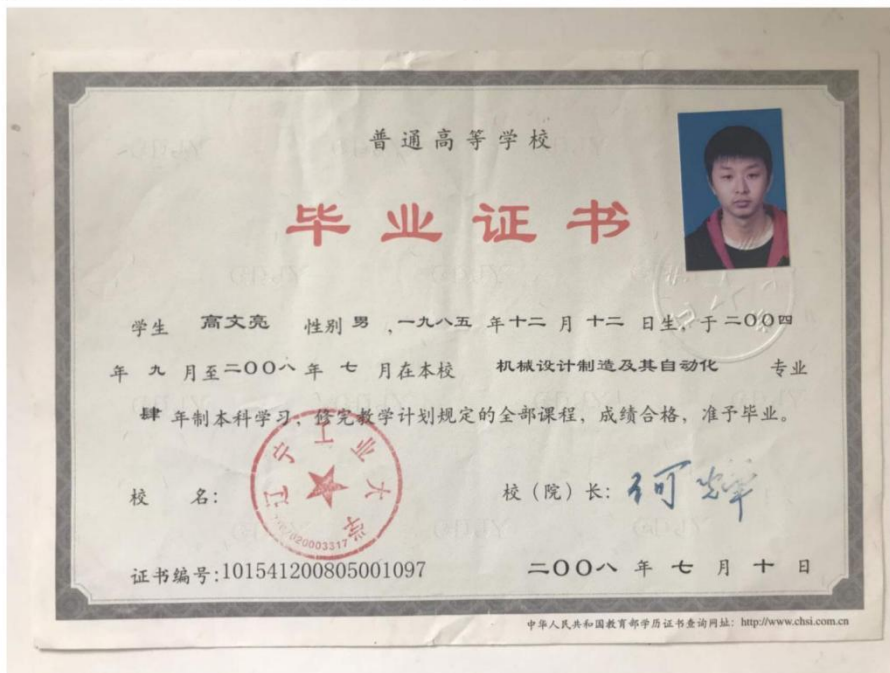 普通高等学校
毕业证书
学生 高文亮 性别 男 ,一九八五 年 十二 月 十二 日生, 于 二OO四
年 九 月至 二OO八 年 七 月在本校 机械设计制造及其自动化 专业
肆 年制本科学习, 修完教学计划规定的全部课程, 成绩合格, 准予毕业。
辽宁工业大学
校 名:
校(院)长: 何辉
证书编号:101541200805001097
二OO八 年 七 月 十 日
中华人民共和国教育部学历证书查询网址: http://www.chsi.com.cn